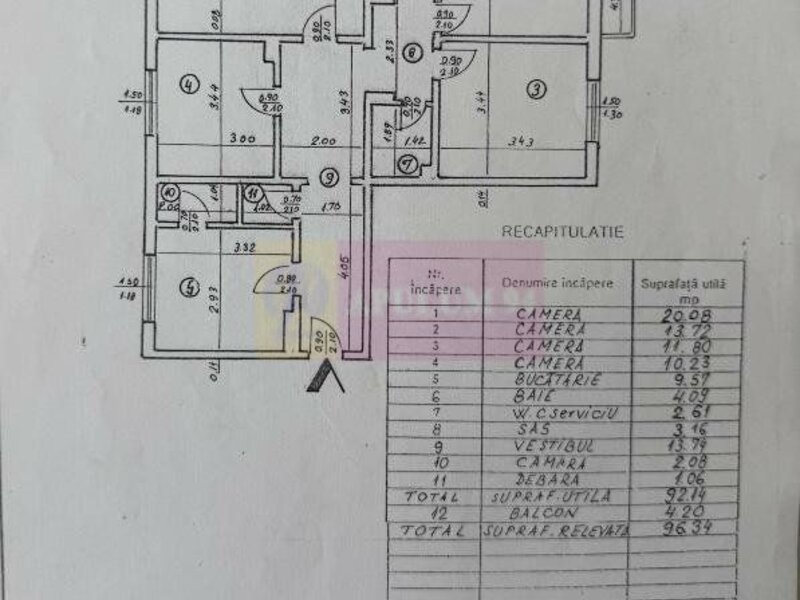 0.08
0.90
2.10
0.90
2.10
2.33
8
4
1.50
1.18
3.44
0.90
2.10
3.43
0.90
2.10
3
3.44
1.50
1.30
0.90
2.10
3.00
2.00
1.89
1.42
3.43
7
9
10
11
1.04
2.00
1.02
0.70
2.10
0.70
2.10
1.70
0.14
3.32
4.05
1.50
1.18
5
2.93
0.90
2.10
0.90
2.10
0.14
RECAPITULATIE
Nr. încăpere Denumire încăpere Suprafață utilă mp
1 CAMERA 20.08
2 CAMERA 13.72
3 CAMERA 11.80
4 CAMERA 10.23
5 BUCĂTĂRIE 9.57
6 BAIE 4.09
7 W.C serviciu 2.61
8 SAS 3.16
9 VESTIBUL 13.74
10 CĂMARĂ 2.08
11 DEBARA 1.06
TOTAL SUPRAF.UTILA 92.14
12 BALCON 4.20
TOTAL SUPRAF.RELEVATA 96.34